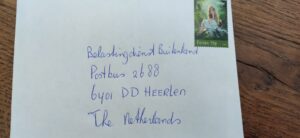 Belastingdienst Buitenland
Postbus 2688
6401 DD HEERLEN
The Netherlands